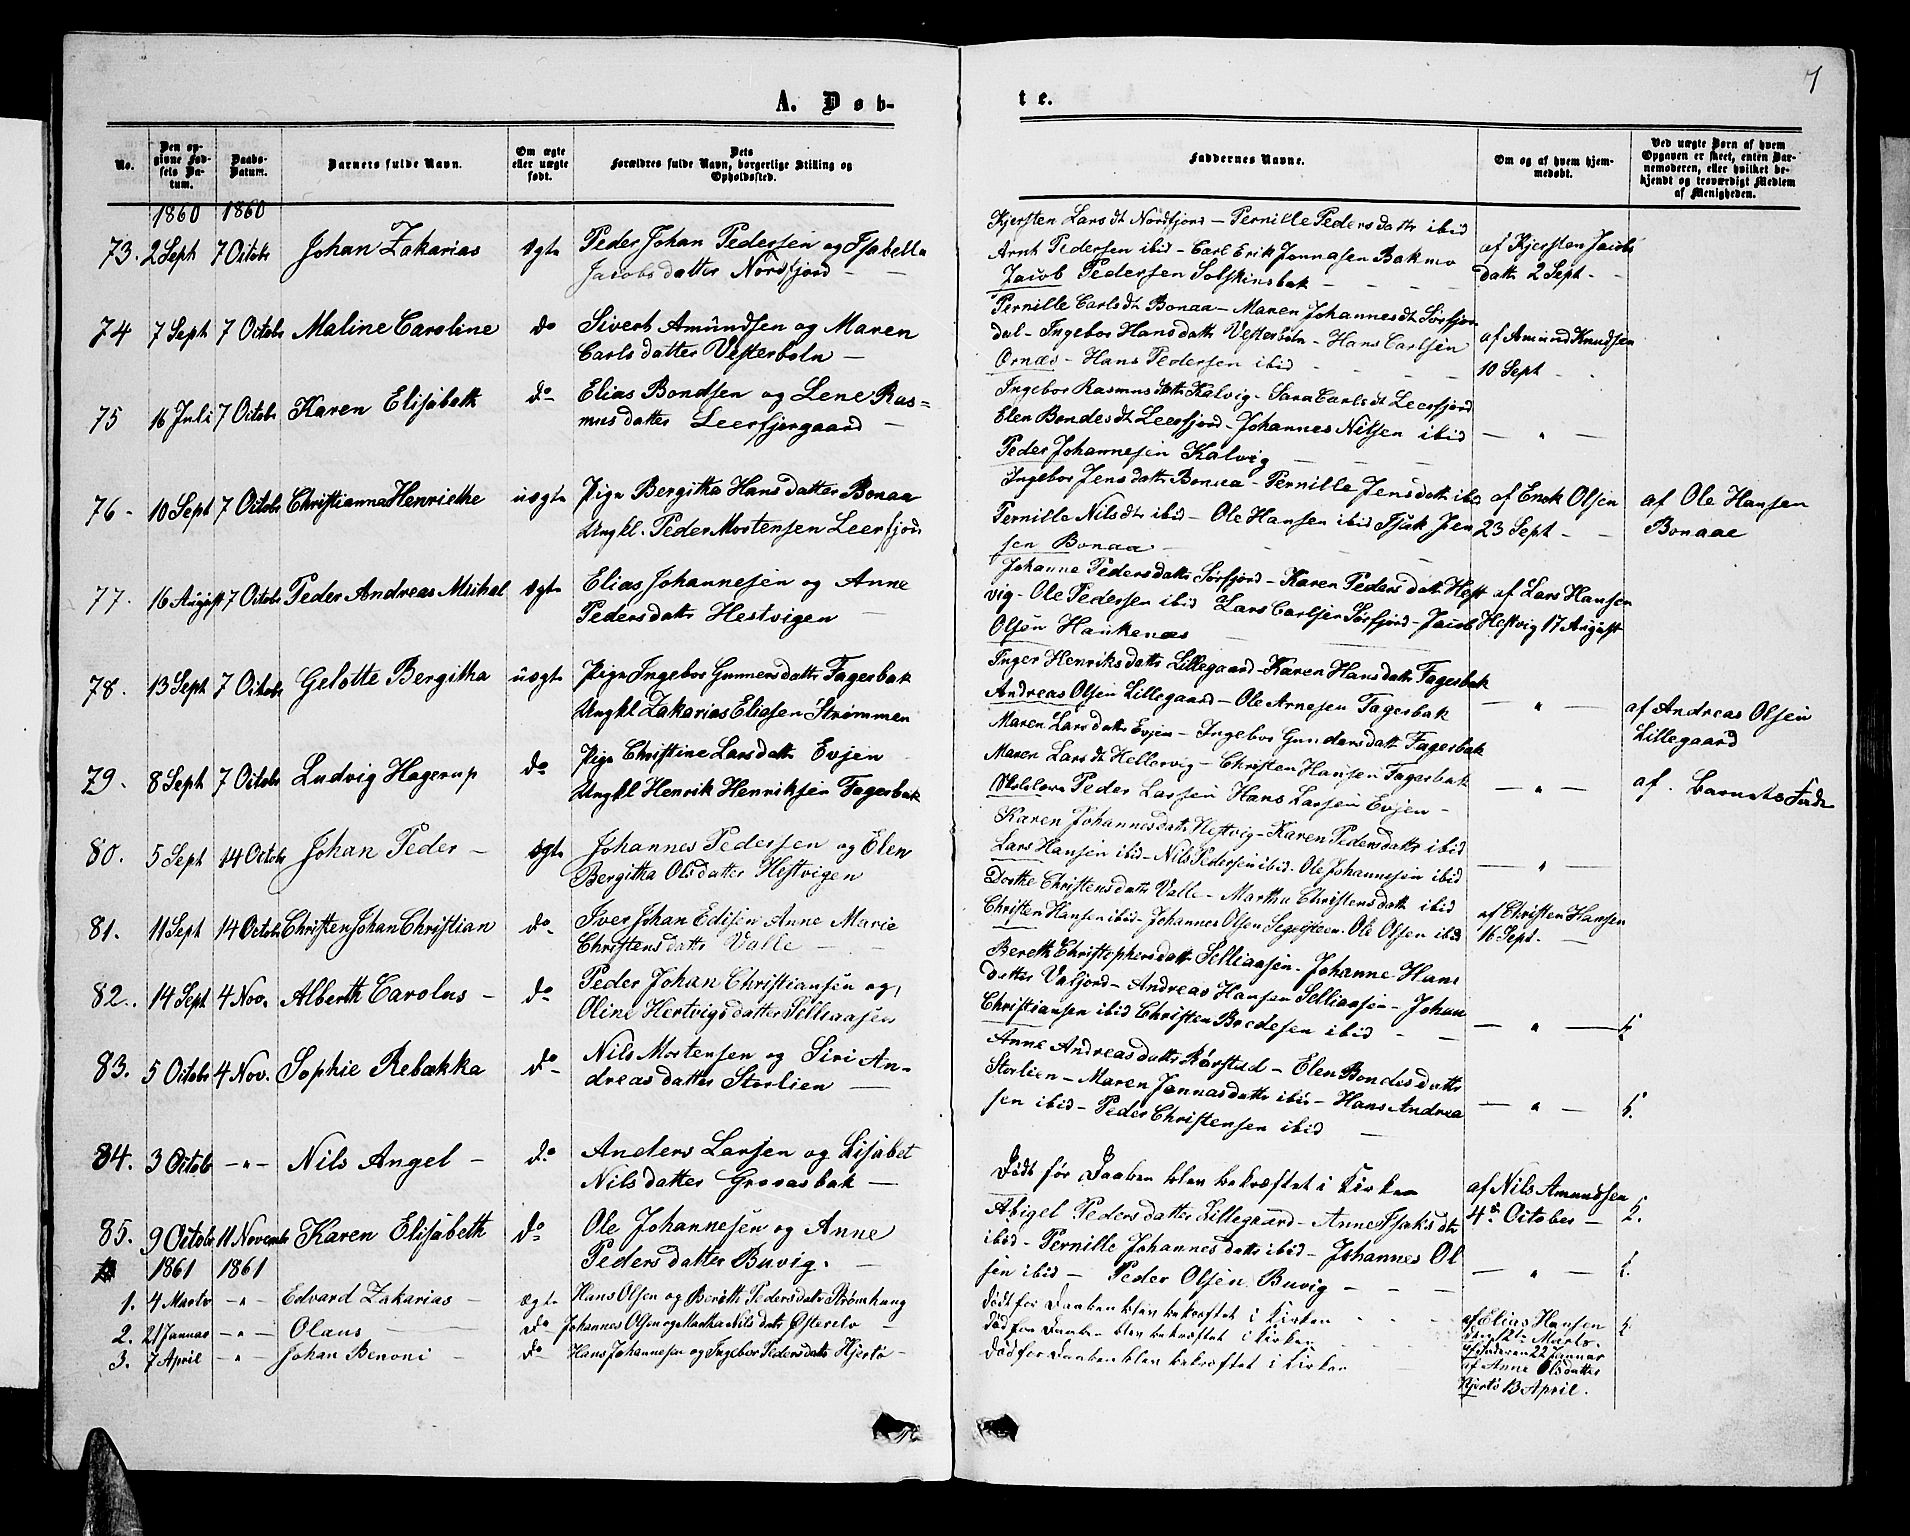 7
A. Døb-
te.
No.
Den opgivne Fødsels Datum.
Daabs-Datum.
Barnets fulde Navn.
Om ægte eller uægte født.
Dets Forældres fulde Navn, borgerlige Stilling og Opholdssted.
Faddernes Navne.
Om og af hvem hjemmedøbt.
Ved uægte Børn af hvem Opgaven er skeet, enten Barnemoderen, eller hvilket bekjendt og troværdigt Medlem af Menigheden.
1860 1860
73. 2 Sept 7 Octobr Johan Zakarias ægte Peder Johan Pedersen og Isabella
Jacobsdatter Nordfjord —
Kjersten Larsdt Nordfjord — Pernille Pedersdattr ibid
Arnt Pedersen ibid — Carl Erik Jonnasen Bakmo
Jacob Pedersen Solskinsbak
af Kjersten Jacobs
datt 2 Sept -
74 7 Sept 7 Octobr Maline Caroline do Sivert Amundsen og Maren
Carlsdatter Vesterboln —
Pernille Carlsdt Bonaa — Maren Johannesdt Sørfjor
dal - Ingebor Hansdattr Vesterboln - Hans Carlsen
Ornæs - Hans Pedersen ibid
af Amund Knudsen
10 Sept
75 16 Juli 7 Octobr Karen Elisabeth do Elias Bondsen og Lene Ras=
musdatter Leerfjorgaard —
Ingebor Rasmusdattr Kalvig - Sara Carlsdt Leerfjord
Elen Bondesdt Leerfjord - Johannes Nilsen ibid — " —
Peder Johannesen Kalvig
76 - 10 Sept 7 Octobr Christianna Henriethe uægte Pige Bergitha Hansdatter Bonaa
Ungkl. Peder Mortensen Leerfjord
Ingebor Jensdatter Bonaa - Pernille Jensdattr ibid
Pernille Nilsdt ibid - Ole Hansen ibid Isak Jen
sen Bonaa
af Enok Olsen
23 Sept
af Ole Hansen
Bonaae
77. 16 August 7 Octobr Peder Andreas Mikal ægte Elias Johannesen og Anne
Pedersdattr Hestvigen
Johanne Pedersdattr Sørfjord - Karen Pedersdattr Hest
vig - Ole Pedersen ibid Lars Carlsen Sørfjord - Jacob
Olsen Haukenæs
af Lars Hansen
Hestvig 17 August
78. 13 Sept 7 Octobr Gelotte Bergitha uægte Pige Ingebor Gunnersdattr Fagerbak
Ungkl Zakarias Eliasen Strømmen
Inger Henriksdattr Lillegaard - Karen Hansdattr Fagerbak
Andreas Olsen Lillegaard - Ole Arnesen Fagerbak — " —
af Andreas Olsen
Lillegaard
79. 8 Sept 7 Octobr Ludvig Hagerup do Pige Christine Larsdattr Evjen
Ungkl Henrik Henriksen Fagerbak
Maren Larsdattr Evjen - Ingebor Gundersdattr Fagerbak
Maren Larsdt Hellervig - Christen Hansen Fagerbak
Peder Larsen Hans Larsen Evjen — " —
af Barnets Fader
80. 5 Sept 14 Octobr Johan Peder — ægte Johannes Pedersen og Elen
Bergitha Olsdatter Hestvigen
Karen Johannesdattr Hestvig - Karen Pedersdattr ibid
Lars Hansen ibid - Nils Pedersen ibid - Ole Johannesen ibid — " —
81. 11 Sept 14 Octobr Christen Johan Christian do Iver Johan Edisen Anne Marie
Christensdattr Valle —
Dorthe Christensdattr Valle - Martha Christensdattr ibid
Christen Hansen ibid - Johannes Olsen Segelsteen - Ole Olsen ibid
af Christen Hansen
16 Sept. —
82. 14 Sept 4 Nov. Alberth Carolus - do Peder Johan Christiansen og
Oline Hertvigsdatter Selliaasen
Bereth Christephersdattr Selliaasen - Johanne Hans
datter Valjord - Andreas Hansen Selliaasen - Johan
Christiansen ibid Christen Bredesen ibid — " —
83. 5 Octobr 4 Nov. Sophie Rebækka do Nils Mortensen og Siri An-
dreasdatter Storlien —
Anne Andreasdattr Børstad - Elen Bondesdattr
Storlien - Maren Jonnasdattr ibid - Hans Andrea
sen ibid - Peder Christensen ibid — " —
84. 3 Octobr - " - Nils Angel - do Anders Larsen og Lisabet
Nilsdatter Grovasbak —
Dødt før Daaben blev bekræftet i Kirken
af Nils Amundsen
4de October —
85. 9 Octobr 11 Novembr Karen Elisabeth do Ole Johannesen og Anne
Pedersdatter Buvig. —
Abigel Pedersdatter Lillegaard - Anne Isaksdtr
ibid - Pernille Johannesdattr ibid - Johannes Ol
sen ibid - Peder Olsen Buvig — " —
1861 1861
1. 4 Marts - " - Edvard Zakarias - ægte Hans Olsen og Bereth Pedersdattr Strømhaug
Dødt for Daaben blev bekræftet i Kirken
af Elias Hansen
Marts
2. 21 Januar - " - Olaus do Johannes Olsen og Martha Nilsdattr Osterelv
Død for Daaben blev bekræftet i Kirken
af Faderen 22 Januar
3. 7 April - " - Johan Benoni - do Hans Johannesen og Ingebor Pedersdattr Hjertø
Død for Daaben blev bekræftet i Kirken
af Anne Olsdatter
Hjertø 13 April.